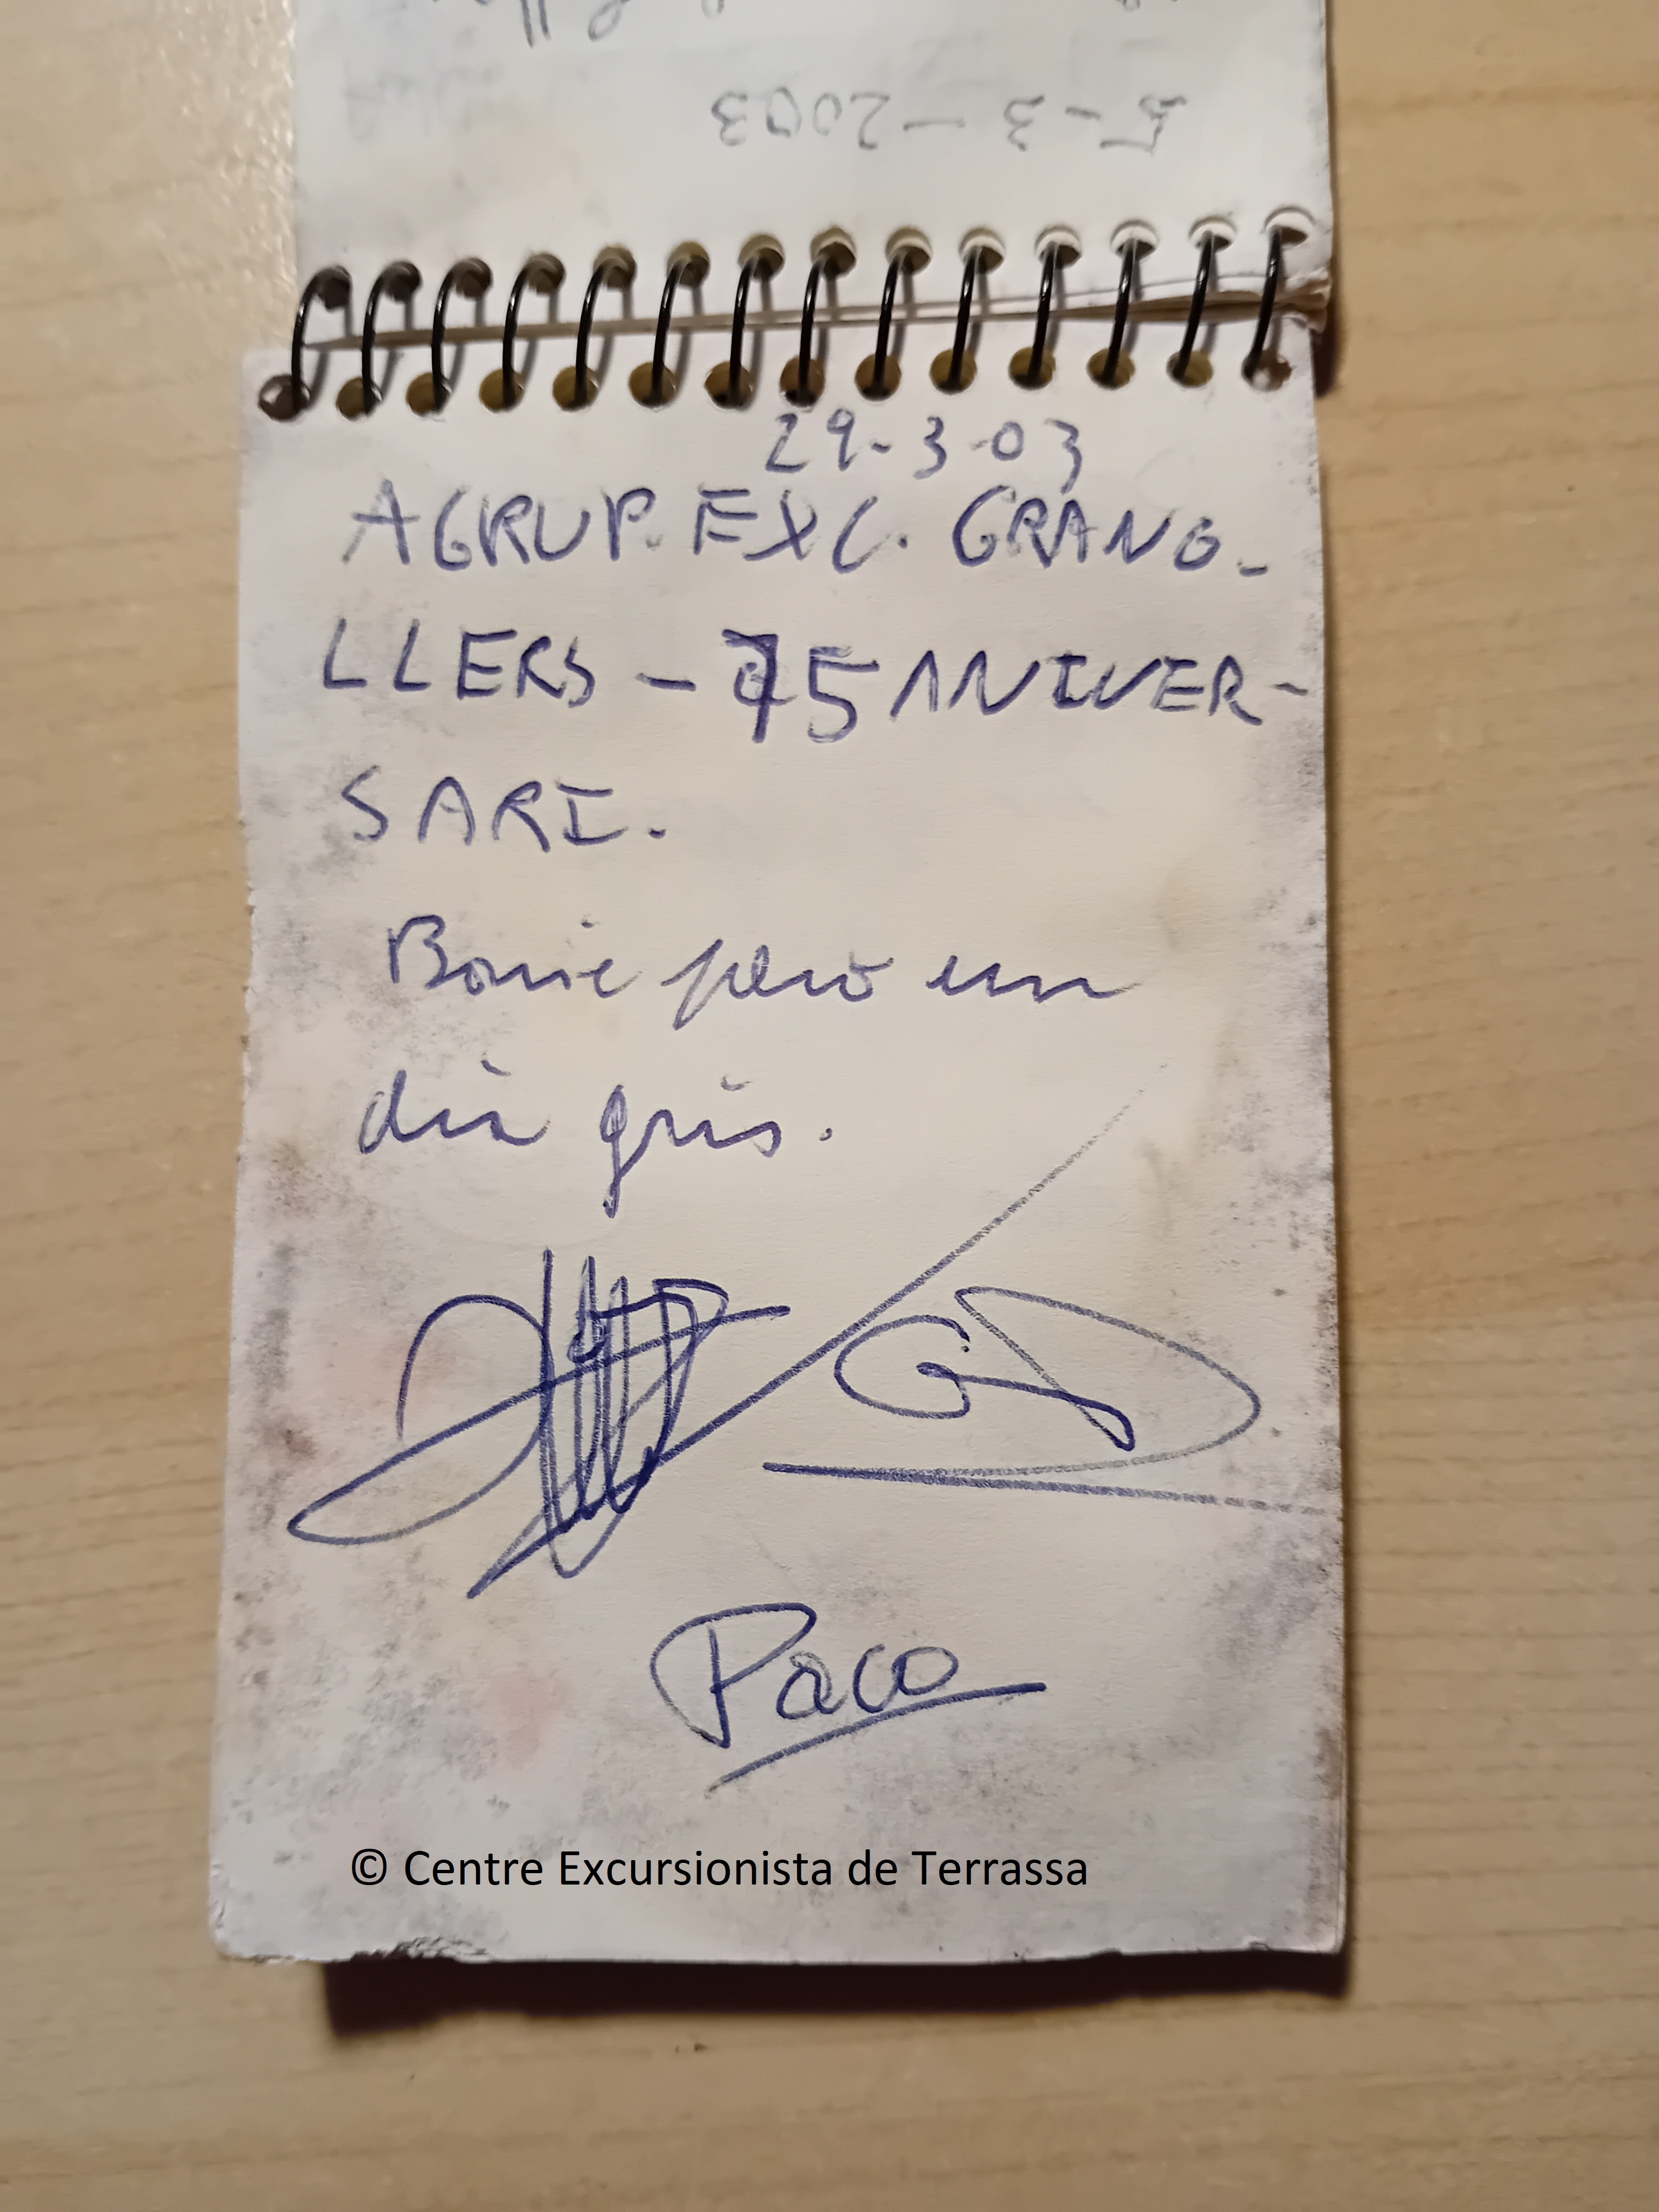 5-3-2003
29-3-03
AGRUP. EXC. GRANO-
LLERS - 75 ANIVER-
SARI.
però un
dia gris.
Paco
© Centre Excursionista de Terrassa